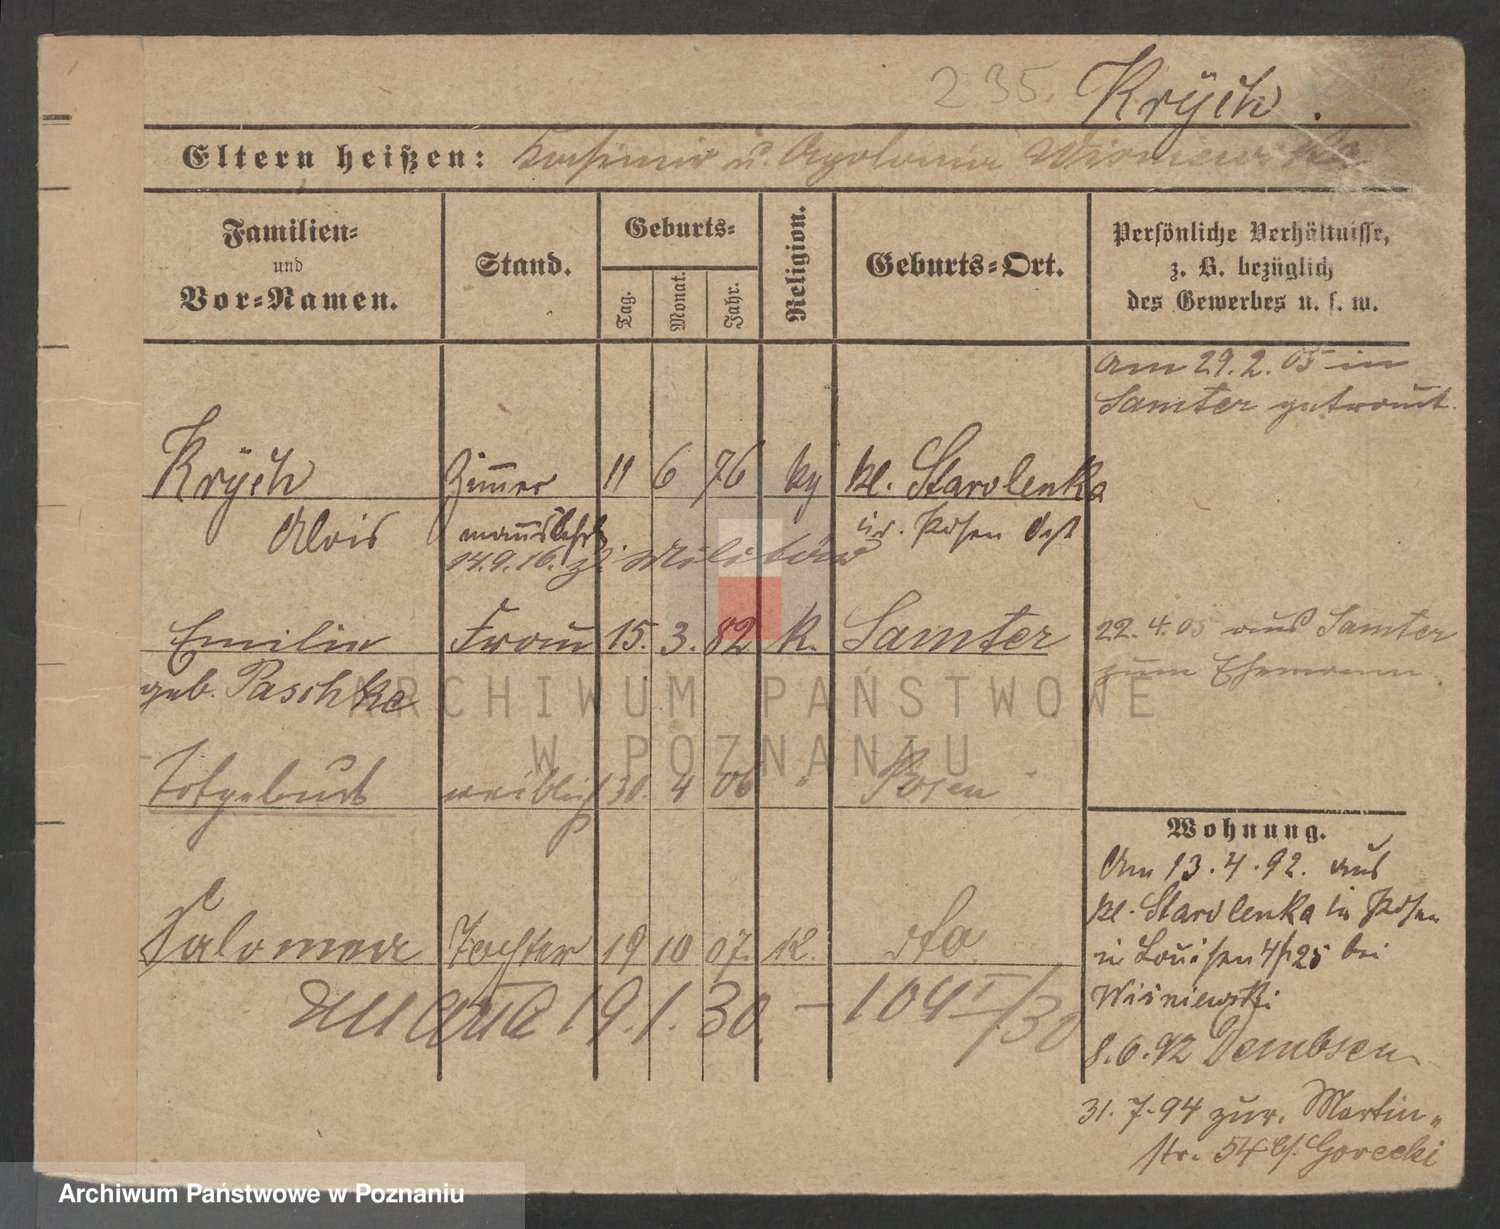 235. Krÿch.
Eltern heißen: Kasimir u. Apolonia Wisniewska
Familien=
und
Vor=Namen.
Stand.
Geburts=
Tag.
Monat.
Jahr.
Religion.
Geburts=Ort.
Persönliche Verhältnisse,
z. B. bezüglich
des Gewerbes u. s. w.
am 29. 2. 05 in
Samter getraut.
Krÿch Zimmer 11 6 76 kg kl. Starolenka
Alois mannslehrl. Kr. Posen Ost
14.9.16. z. Militär
Emilie Frau 15. 3. 82 k. Samter
22. 4. 05 aus Samter
geb. Paschke
zum Ehemann.
Totgeburt weiblich 30. 4 06 " Posen
Salomea Tochter 19 10 07. k. dto
19. 1. 30. – 104 I/30
Wohnung.
Am 13. 4. 92. aus
kl. Starolenka in Posen
in Louisenstr 25 bei
Wiśniewski
8. 6. 92 Dembsen
31. 7. 94 zur. Martin-
str. 54 b/. Gorecki
ARCHIWUM PAŃSTWOWE
W POZNANIU
Archiwum Państwowe w Poznaniu